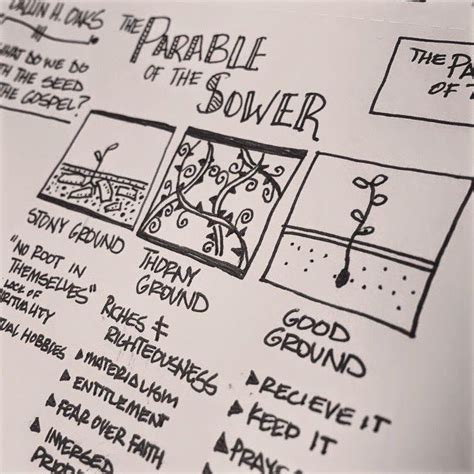 DALLIN H. OAKS
WHAT DO WE DO
WITH THE SEED
THE GOSPEL?
THE PARABLE
OF THE SOWER
THE PA
OF T
STONY GROUND
"NO ROOT IN
THEMSELVES"
LACK OF
SPIRITUALITY
UAL HOBBIES
THORNY
GROUND
RICHES &
RIGHTEOUSNESS
MATERIALISM
ENTITLEMENT
FEAR OVER FAITH
INVERSED
GOOD
GROUND
RECIEVE IT
KEEP IT
PRAYE